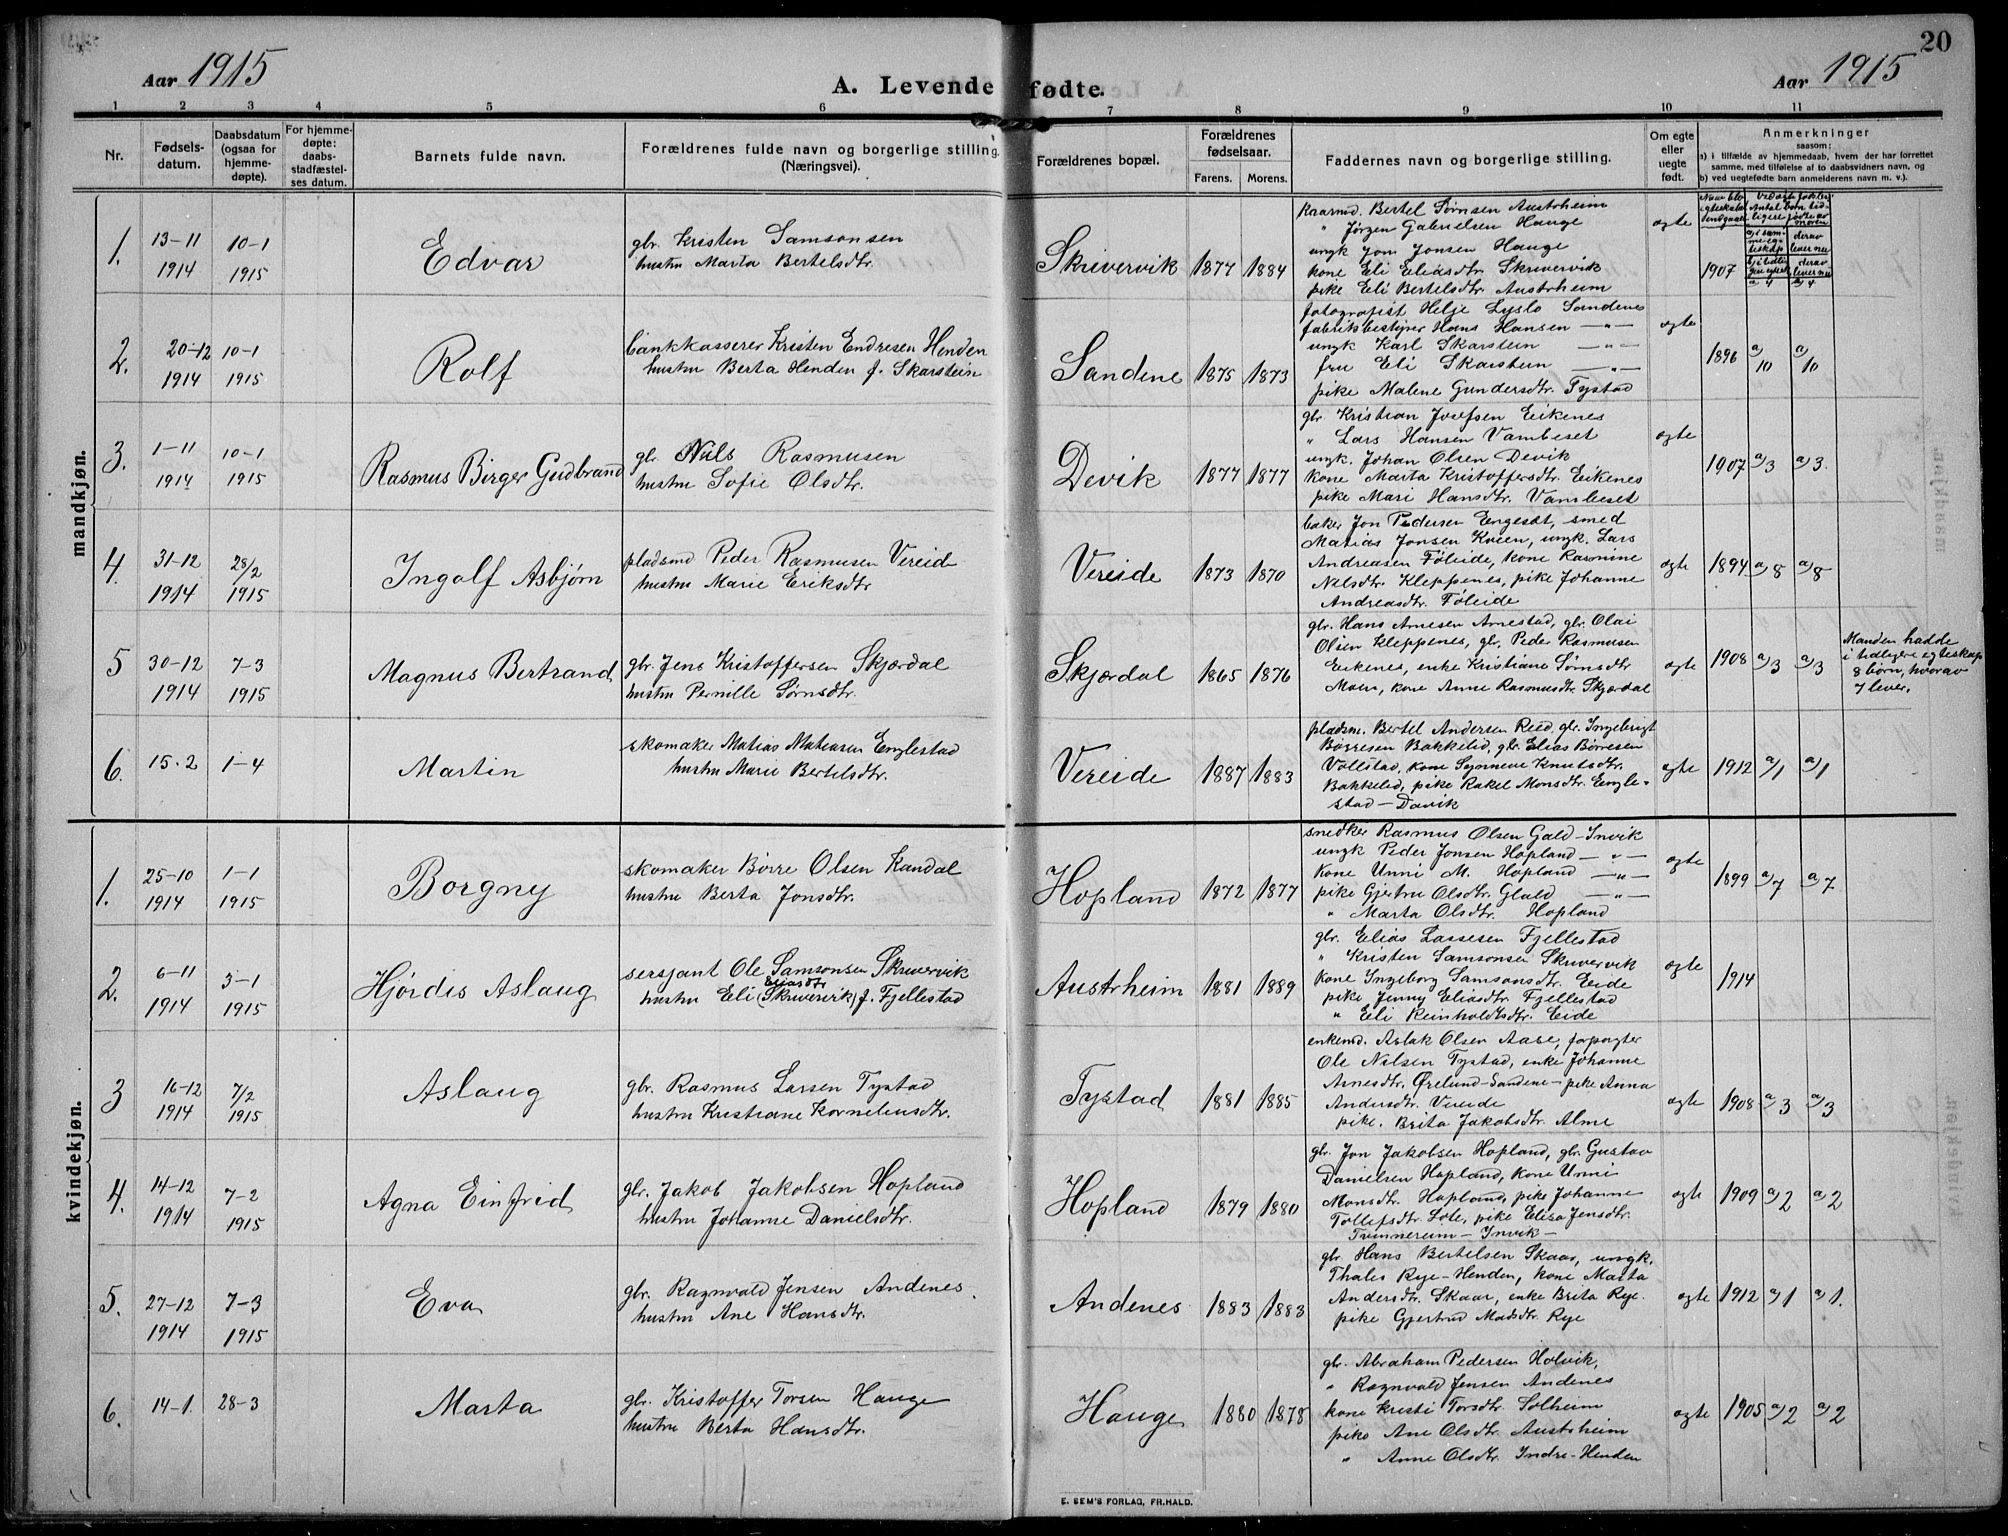 20
Aar 1915
A. Levende fødte.
Aar 1915
1 2 3 4 5 6 7 8 9 10 11
Nr.
Fødsels-
datum.
Daabsdatum
(ogsaa for
hjemme-
døpte).
For hjemme-
døpte:
daabs-
stadfæstel-
ses datum.
Barnets fulde navn.
Forældrenes fulde navn og borgerlige stilling.
(Næringsvei).
Forældrenes bopæl.
Forældrenes
fødselsaar.
Farens. Morens.
Faddernes navn og borgerlige stilling.
Om egte
eller
uegte
født.
Anmerkninger
saasom:
a) i tilfælde av hjemmedaab, hvem der har forrettet
samme, med tilføielse af to daabsvidners navn, og
b) ved uegtefødte barn anmelderens navn m. v.).
mandkjøn.
1.
13-11
1914
10-1
1915
Edvar
gbr. Kristen Samsonsen
hustru Marta Bertelsdtr.
Skrivervik 1877 1884
kaarmd. Bertel Sørnsen Austrheim
" Jørgen Gabrielsen Hauge
ungk Jon Jonsen Hauge
kone Eli Eliasdtr Skrivervik
pike Eli Bertelsdtr. Austrheim
egte
1907 a/4 a/4
2.
20-12
1914
10-1
1915
Rolf
bankkasserer Kristen Endresen Henden
hustru Berta Henden f. Skarstein
Sandene 1875 1873
fotografist Helje Lyslo Sandenes
fabrikbestyrer Hans Hansen —"—
ungk Karl Skarstein —"—
fru Eli Skarstein —"—
pike Malene Gundersdtr. Tystad
egte
1896 a/10 a/10
3.
1-11
1914
10-1
1915
Rasmus Birger Gudbrand
gbr. Nils Rasmusen
hustru Sofie Olsdtr.
Devik 1877 1877
gbr Kristian Josefsen Eikenes
" Lars Hansen Vambeset
ungk. Johan Olsen Devik
kone Marta Kristoffersdtr. Eikenes
pike Mari Hansdtr. Vambeset
egte
1907 a/3 a/3.
4.
31-12
1914
28/2
1915
Ingolf Asbjørn
pladsmd Peder Rasmusen Vereid
hustru Marie Eriksdtr
Vereide 1873 1870
baker Jon Pedersen Engesæt, smed
Matias Jonsen Kvien, ungk. Lars
Andreasen Føleide, kone Rasmine
Nilsdtr. Kleppenes, pike Johanne
Andreasdtr. Føleide
egte 1894 a/8 a/8
5
30-12
1914
7-3
1915
Magnus Bertrand
gbr. Jens Kristoffersen Skjærdal
hustru Pernille Sørnsdtr.
Skjærdal 1865 1876
gbr. Hans Arnesen Arnestad, gbr. Olai
Olsen Kleppenes, gbr. Peder Rasmusen
Eikenes, enke Kristiane Sørnsdtr
Moen, kone Anne Rasmusdtr Skjærdal
egte 1908 a/3 a/3
Manden hadde
i tidligere egteskap
8 børn, hvorav
7 lever.
6.
15-2
1-4
Martin
skomaker Matias Matiasen Englestad
hustru Marie Bertelsdtr.
Vereide 1887 1883
pladsm. Bertel Andersen Reed, gbr. Ingebrigt
Børresen Bakkelid, gbr. Elias Børresen
Vollstad, kone Synneve Knutsdtr.
Bakkelid, pike Rakel Monsdtr. Engle-
stad — Davik
egte 1912 a/1 a/1
kvindekjøn.
1.
25-10
1914
1-1
1915
Borgny
skomaker Børre Olsen Kandal
hustru Berta Jonsdtr.
Hopland 1872 1877
snedker Rasmus Olsen Gald - Invik
ungk Peder Jonsen Hopland —"—
kone Unni M. Hopland —"—
pike Gjertru Olsdtr. Glald —"—
" Marta Olsdtr. Hopland
egte
1899 a/7 a/7
2.
6-11
1914
3-1
1915
Hjørdis Aslaug
sersjant Ole Samsonsen Skrivervik
Eliasdtr
hustru Eli (Skrivervik) f. Fjellestad
Austrheim 1881 1889
gbr. Elias Lassesen Fjellestad
" Kristen Samsonsen Skrivervik
kone Ingeborg Samsonsdtr. Eide
pike Jenny Eliasdtr. Fjellestad
" Eli Reinholdtsdtr. Eide
egte
1914
3
16-12
1914
7/2
1915
Aslaug
gbr. Rasmus Larsen Tystad
hustru Kristiane Korneliusdtr.
Tystad 1881 1885
enkemd. Aslak Olsen Aase, forpagter
Ole Nilsen Tystad, enke Johanne
Arnesdtr. Ørelund-Sandene - pike Anna
Andersdtr. Vereide
pike. Brita Jakobsdtr. Alme
egte 1908 a/3 a/3
4.
14-12
1914
7-2
1915
Agna Einfrid
gbr. Jakob Jakobsen Hopland
hustru Johanne Danielsdtr.
Hopland 1879 1880
gbr. Jon Jakobsen Hopland, gbr. Gustav
Danielsen Hopland, kone Unni
Monsdtr. Hopland, pike Johanne
Tollefsdtr. Lote, pike Elisa Jensdtr.
Tvinnereim - Invik -
egte 1909 a/2 a/2
5.
27-12
1914
7-3
1915
Eva
gbr. Ragnvald Jensen Andenes.
hustru Ane Hansdtr.
Andenes 1883 1883
gbr. Hans Bertelsen Skaar, ungk.
Thales Rye-Henden, kone Marta
Andersdtr. Skaar, enke Brita Rye.
pike Gjertrud Madsdtr. Rye
egte 1912 a/1 a/1.
6.
14-1.
28-3
Marta
gbr. Kristoffer Torsen Hauge
hustru Berta Hansdtr.
Hauge 1880 1878
gbr. Abraham Pedersen Holvik,
" Ragnvald Jensen Andenes
kone Kristi Torsdtr. Solheim
pike Ane Olsdtr. Austrheim
" Anne Olsdtr. Indre-Henden
egte 1905 a/2 a/2
E. SEM'S FORLAG, FR.HALD.